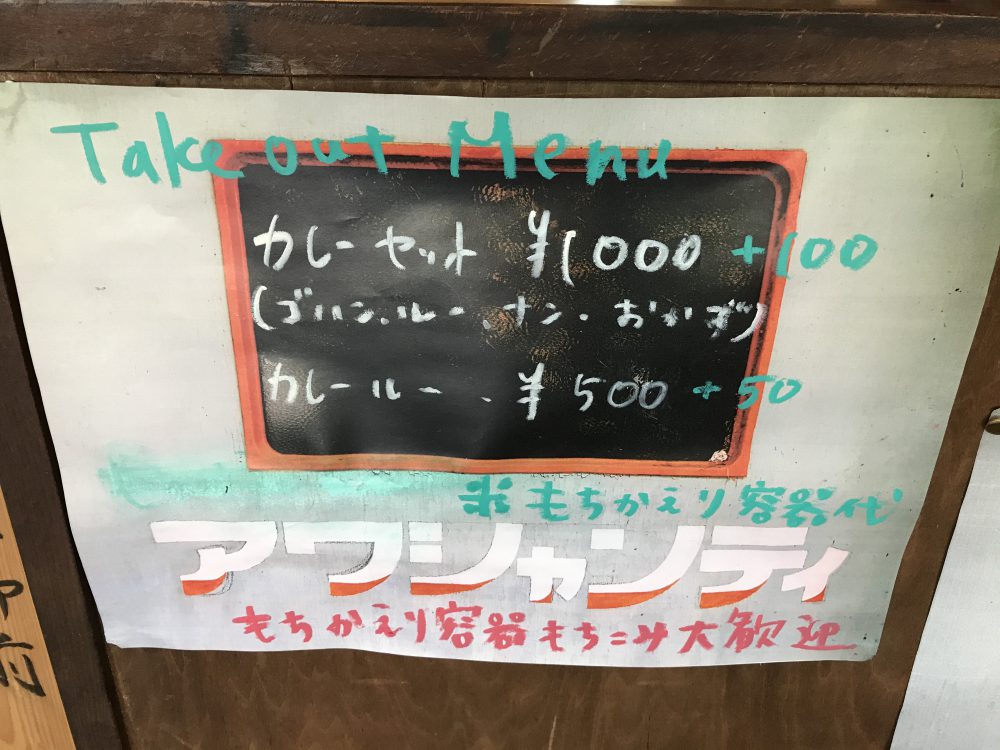 Take out Menu
カレーセット ¥1000 +100
(ゴハン、ルー、ナン・おかず)
カレールー、¥500 +50
※もちかえり容器代
アワシャンティ
もちかえり容器もちこみ大歓迎
前